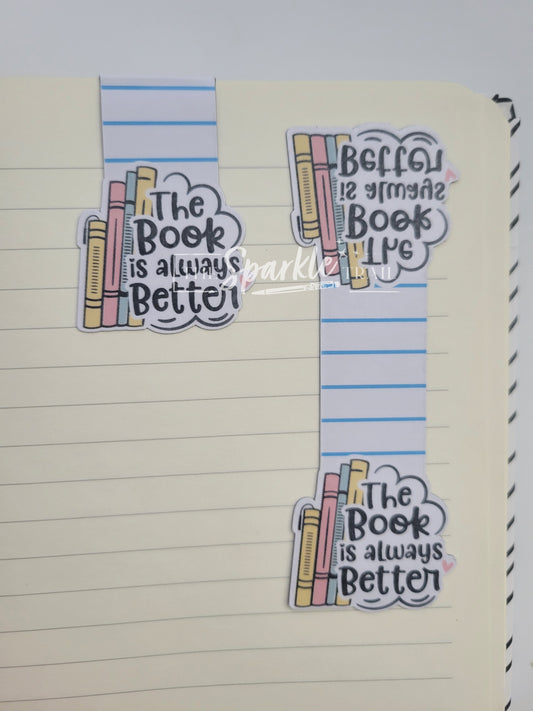 The
Book
is always
Better
The
Book
is always
Better
THE Sparkle TRAIL
The
Book
is always
Better